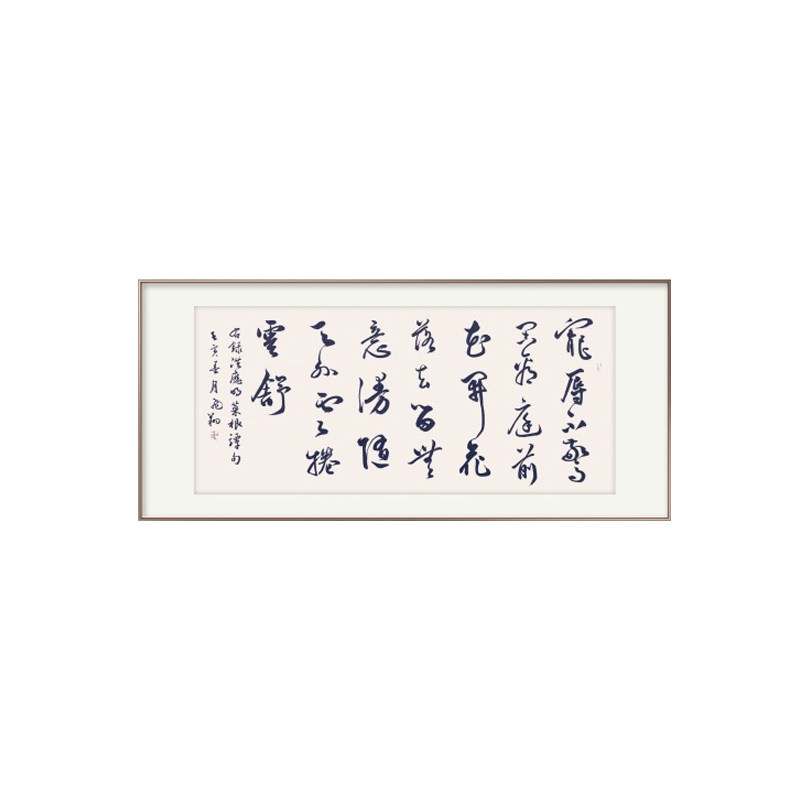 寵辱不驚
閑看庭前
花開花
落去留無
意漫隨
天外雲捲
雲舒
右錄洪應明菜根譚句
壬寅春月飛翔